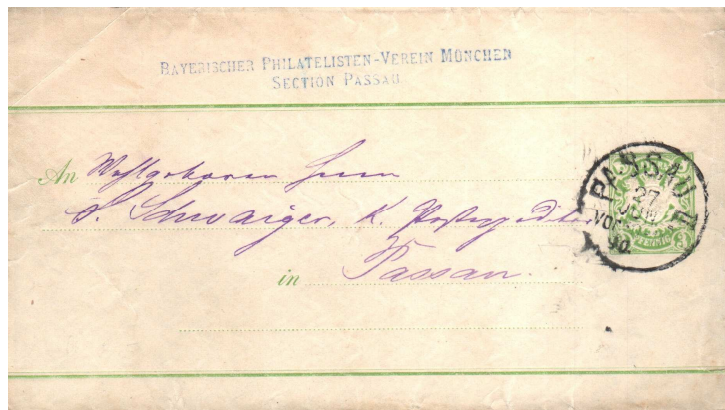 BAYERISCHER PHILATELISTEN-VEREIN MÜNCHEN
SECTION PASSAU
An Wohlgeboren Herrn
S. Schwaiger, K. Postexpeditor
in Passau.
PASSAU II
27
JUN
VOR
90
PFENNIG